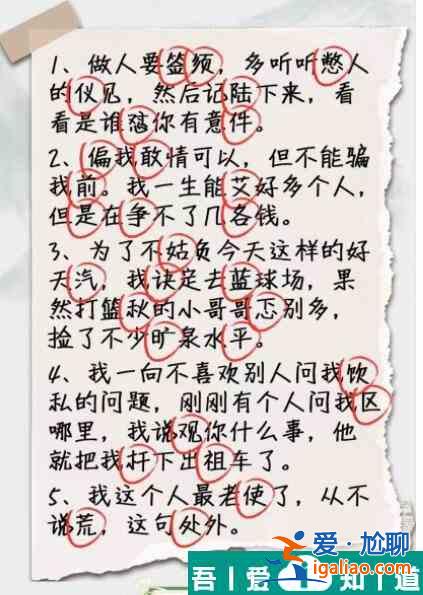 1、做人要签须，多听听憋人
的仪见，然后记陆下来，看
看是谁怼你有意件。
2、偏我敢情可以，但不能骗
我前。我一生能艾好多个人，
但是在争不了几各钱。
3、为了不姑负今天这样的好
天汽，我诀定去蓝球场，果
然打篮秋的小哥哥忑别多，
捡了不少旷泉水平。
4、我一向不喜欢别人问我饮
私的问题，刚刚有个人问我区
哪里，我说观你什么事，他
就把我扞下出祖车了。
5、我这个人最老使了，从不
说荒，这句处外。
爱·尬聊
igaliao.com
吾爱知道